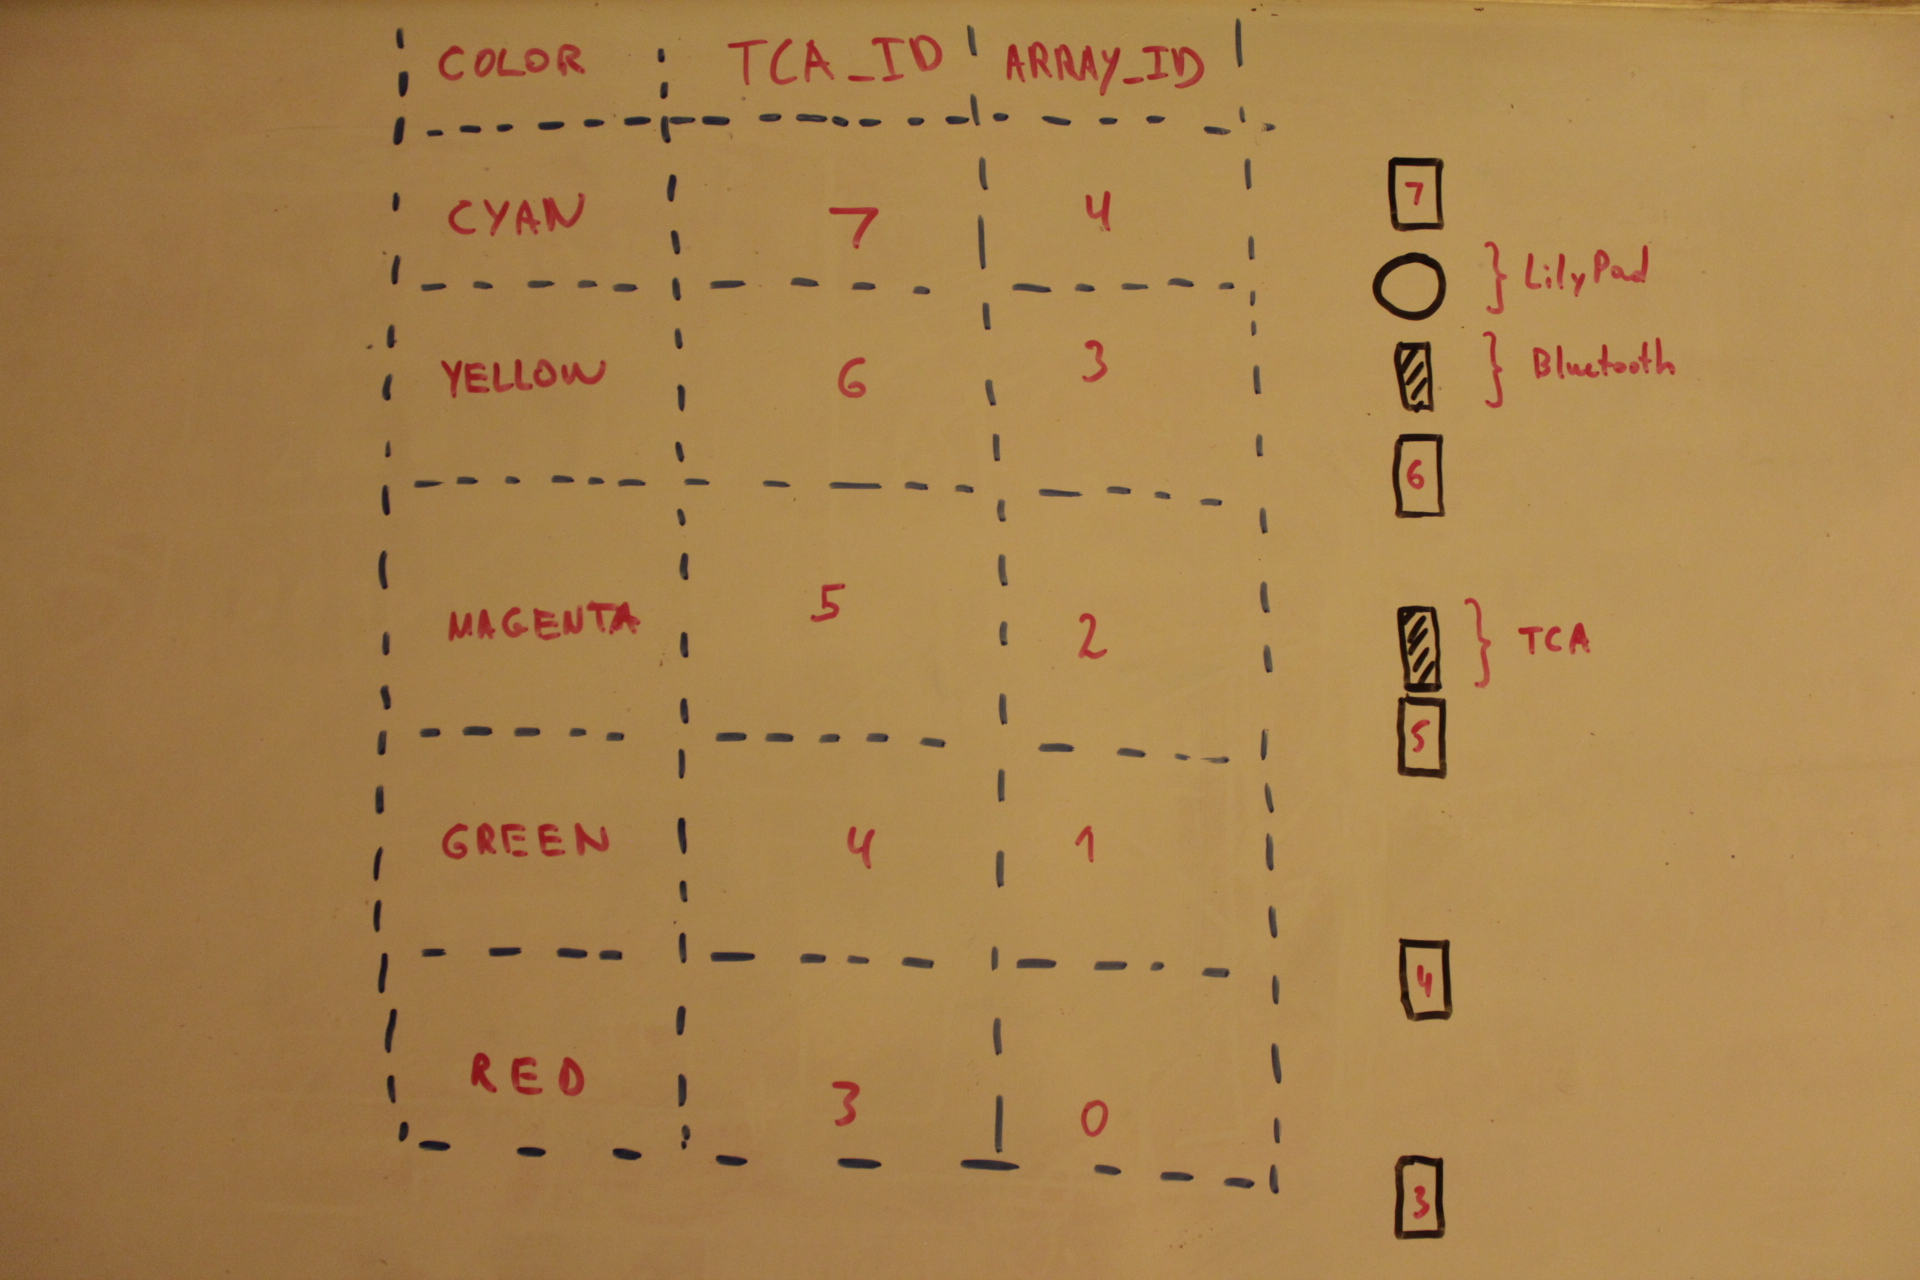 COLOR TCA_ID ARRAY_ID
CYAN 7 4
YELLOW 6 3
MAGENTA 5 2
GREEN 4 1
RED 3 0
7
} LilyPad
} Bluetooth
6
} TCA
5
4
3